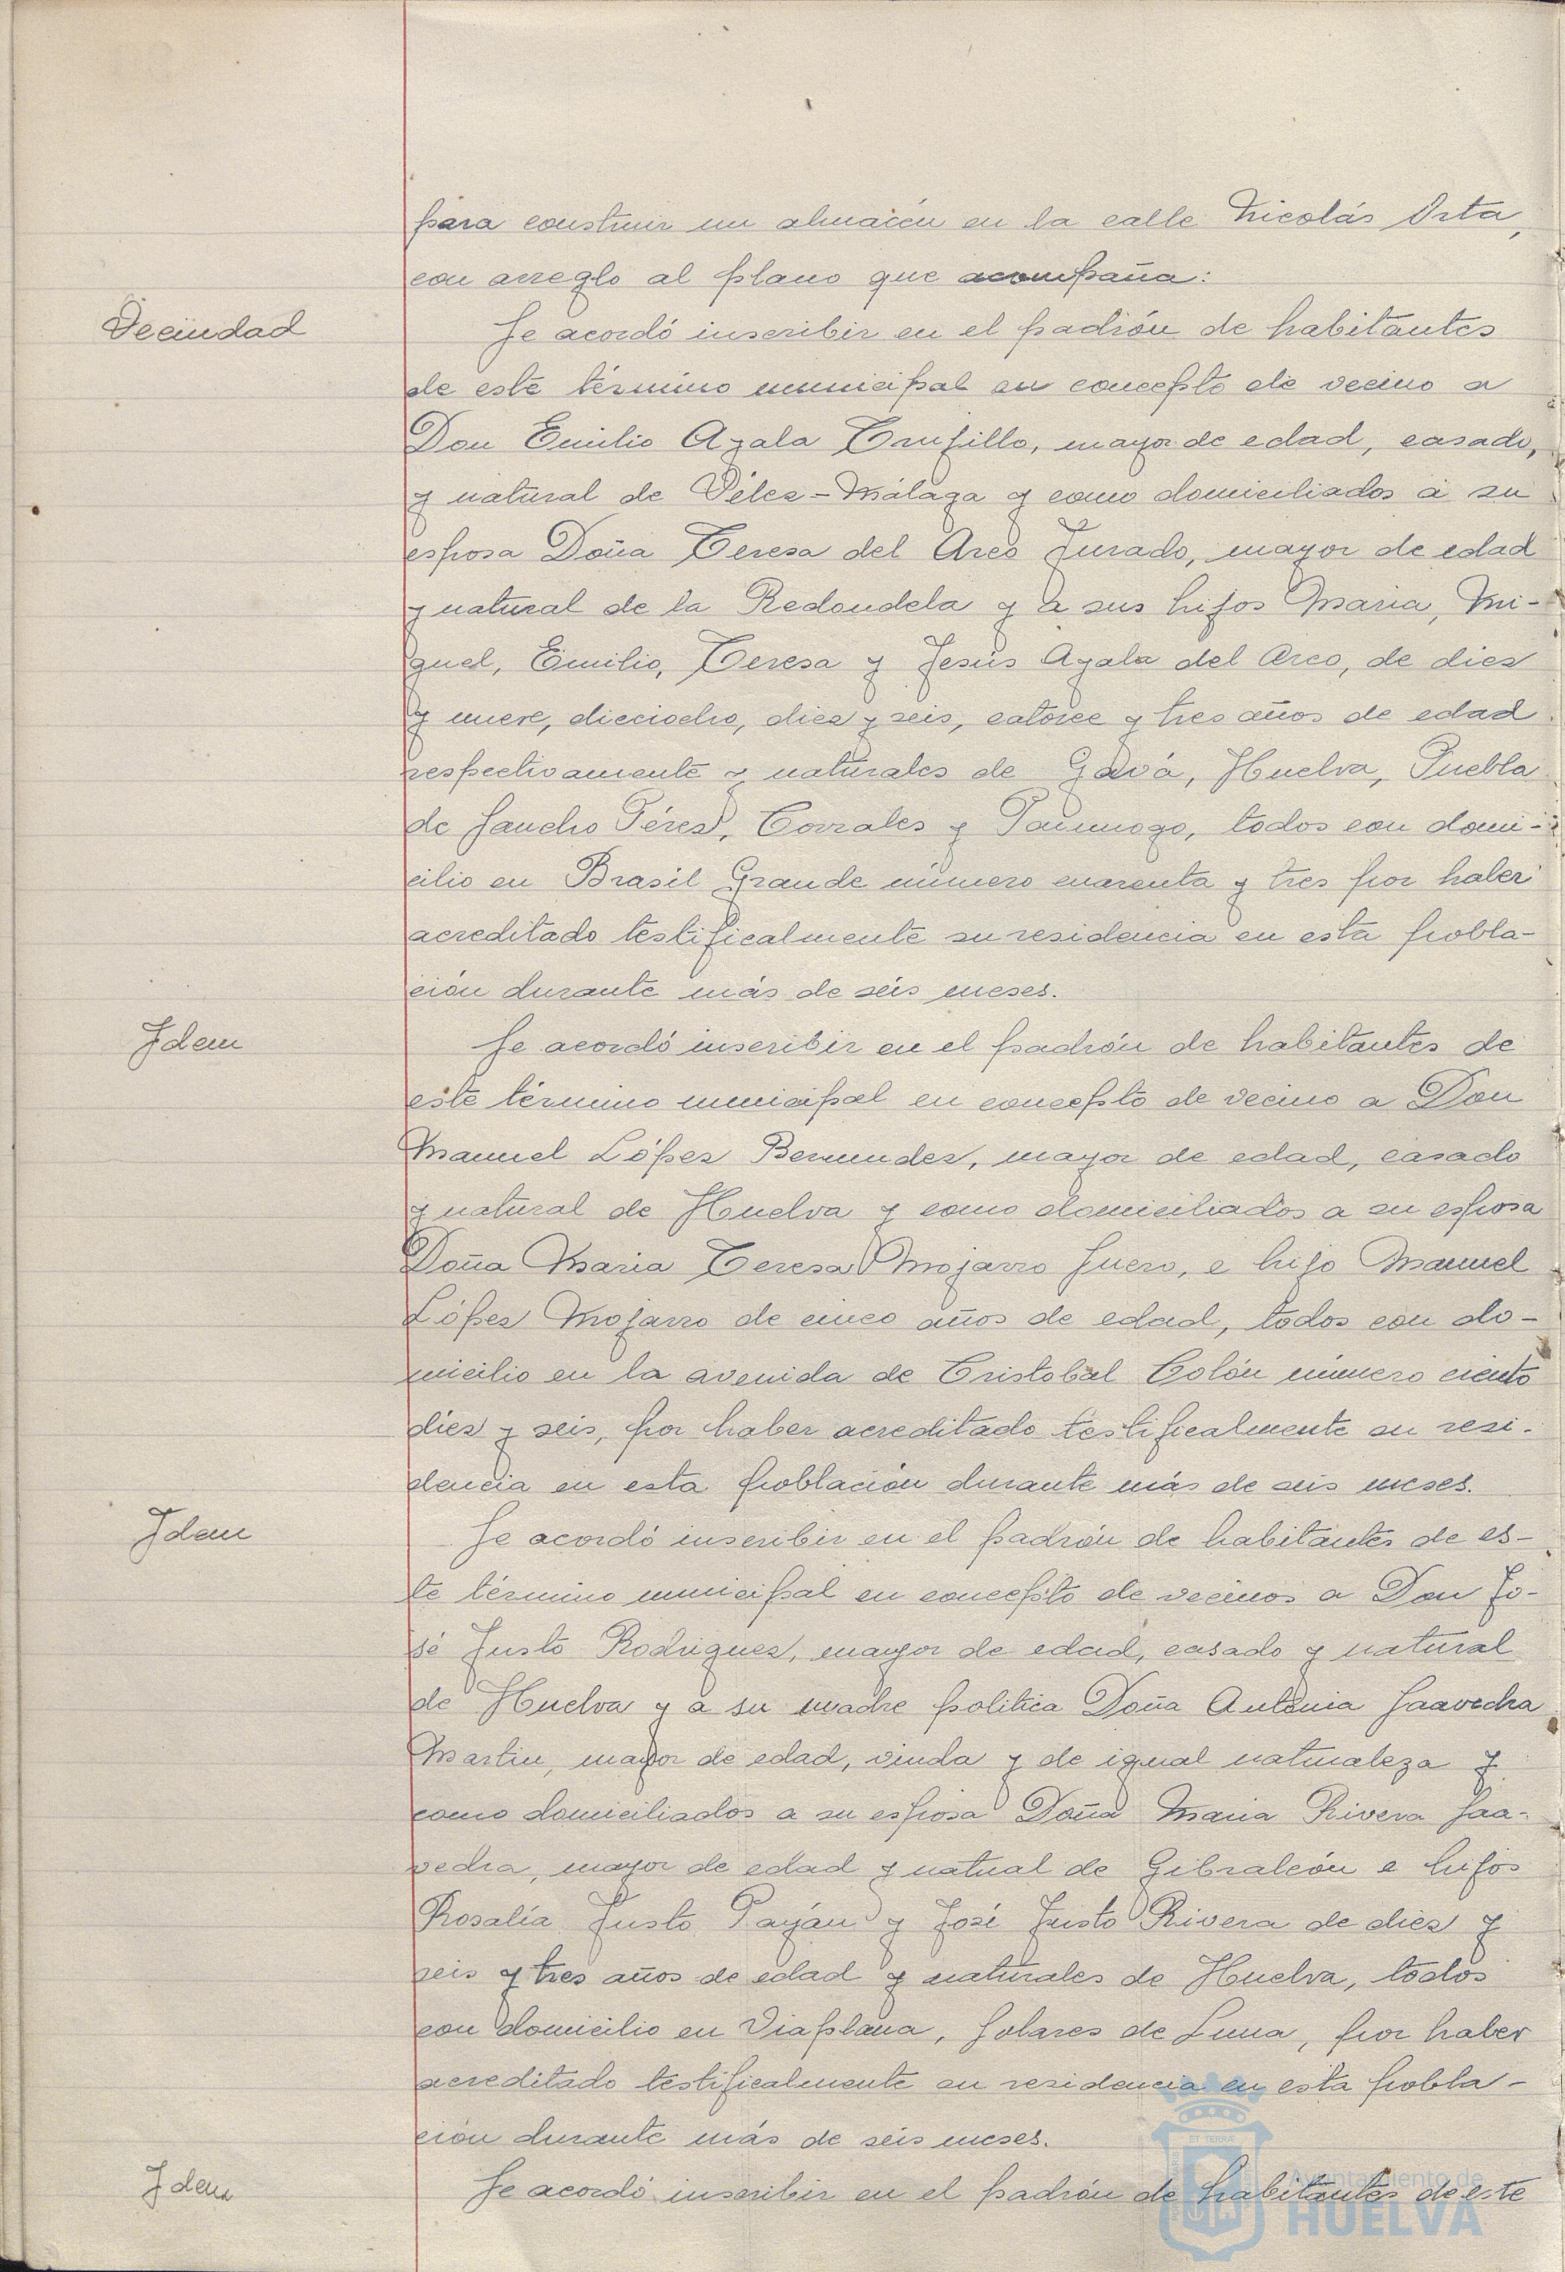 para construir un almacén en la calle Nicolás Orta,
con arreglo al plano que acompaña:
Vecindad
Se acordó inscribir en el padrón de habitantes
de este término municipal en concepto de vecino a
Don Emilio Ayala Trujillo, mayor de edad, casado,
y natural de Vélez-Málaga y como domiciliados a su
esposa Doña Teresa del Arco Jurado, mayor de edad
y natural de la Redondela y a sus hijos Maria, Mi-
guel, Emilio, Teresa y Jesús Ayala del Arco, de diez
y nueve, dieciocho, diez y seis, catorce y tres años de edad
respectivamente y naturales de Gavá, Huelva, Puebla
de Sancho Pérez, Corrales y Paimogo, todos con domi-
cilio en Brasil Grande número cuarenta y tres por haber
acreditado testificalmente su residencia en esta pobla-
ción durante más de seis meses.
Idem
Se acordó inscribir en el padrón de habitantes de
este término municipal en concepto de vecino a Don
Manuel López Bermudez, mayor de edad, casado
y natural de Huelva y como domiciliados a su esposa
Doña Maria Teresa Mojarro Suero, e hijo Manuel
López Mojarro de cinco años de edad, todos con do-
micilio en la avenida de Cristobal Colón número ciento
diez y seis, por haber acreditado testificalmente su resi-
dencia en esta población durante más de seis meses.
Idem
Se acordó inscribir en el padrón de habitantes de es-
te término municipal en concepto de vecinos a Don Jo-
sé Justo Rodriguez, mayor de edad, casado y natural
de Huelva y a su madre politica Doña Antonia Saavedra
Martin, mayor de edad, viuda y de igual naturaleza y
como domiciliados a su esposa Doña Maria Rivera Saa-
vedra, mayor de edad y natual de Gibraleón e hijos
Rosalía Justo Payán y José Justo Rivera de diez y
seis y tres años de edad y naturales de Huelva, todos
con domicilio en Viaplana, Solares de Luna, por haber
acreditado testificalmente su residencia en esta pobla-
ción durante más de seis meses.
Idem
Se acordó inscribir en el padrón de habitantes de este
Ayuntamiento de
HUELVA